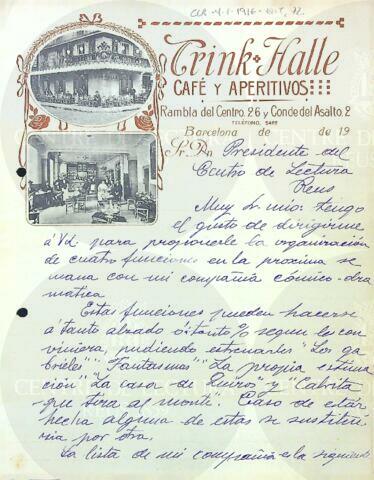 Trink-Halle
CAFÉ Y APERITIVOS
Rambla del Centro, 26 y Conde del Asalto, 2
TELÉFONO,
Barcelona de de 19
Sr. Dn Presidente del
Centro de Lectura
Reus
Muy Sr. mio: Tengo
el gusto de dirigirme
á Vd. para proponerle la organización
de cuatro funciones en la proxima se
mana con mi compañia cómico-dra
matica
Estas funciones pueden hacerse
a tanto alzado ó tanto % segun les con
viniera, pudiendo estrenarles "Los ga
brieles" "Fantasmas" "La propia estima
ción" "La casa de Quirós" y "Cabrita
que tira al monte". Caso de estar
hecha alguna de estas se sustitui
ria por otra.
La lista de mi compañia es la siguiente